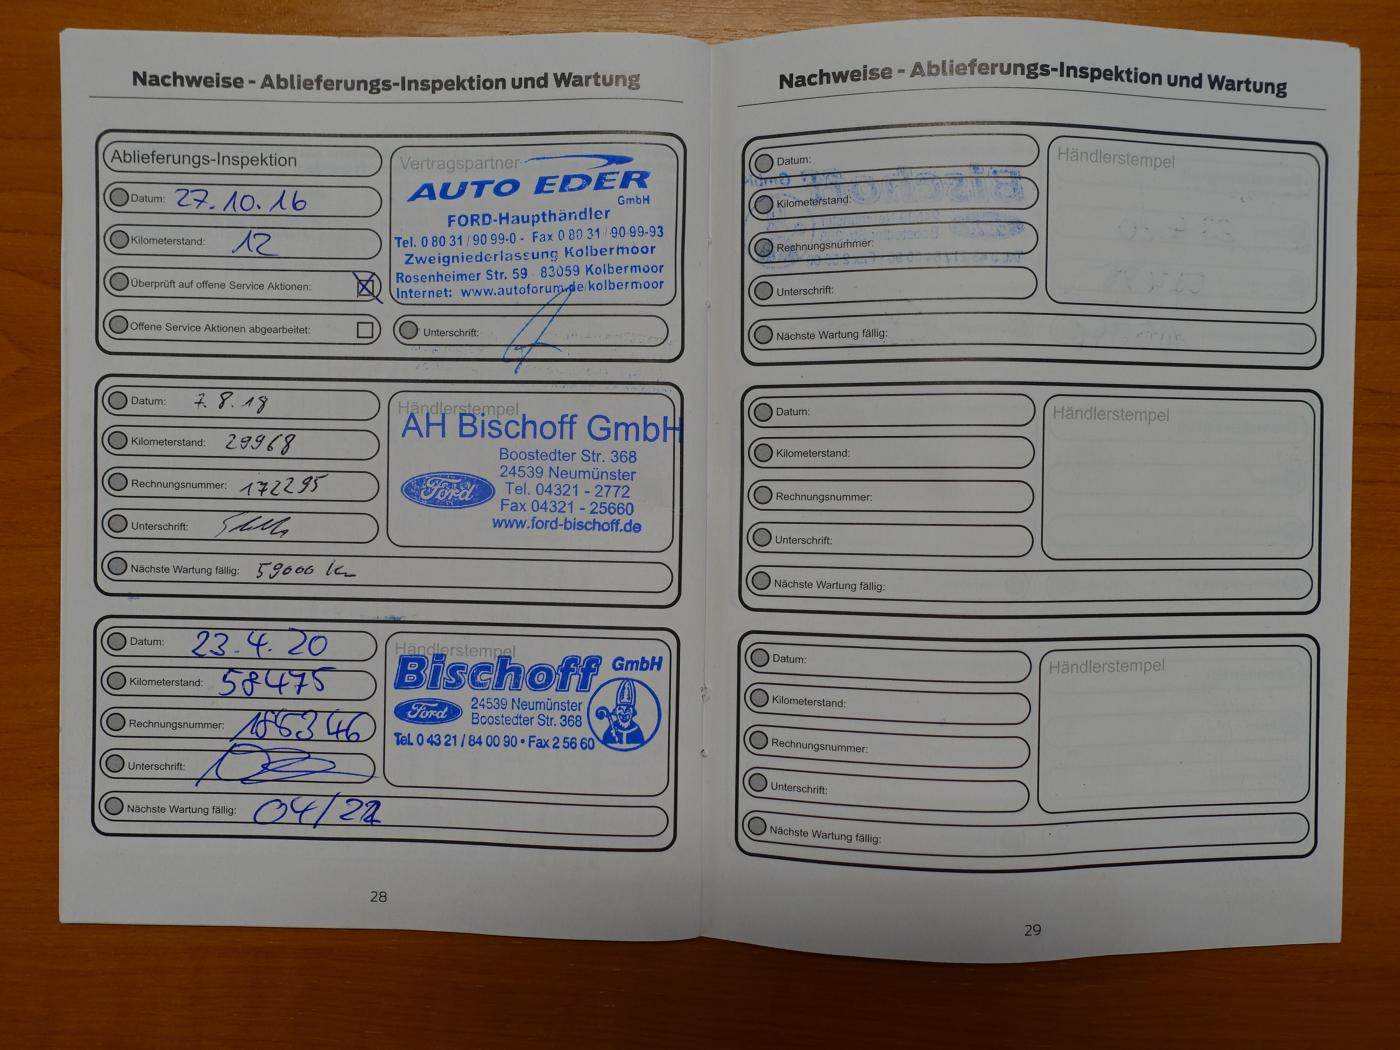 Nachweise - Ablieferungs-Inspektion und Wartung
Ablieferungs-Inspektion
Datum: 27.10.16
Kilometerstand: 12
Überprüft auf offene Service Aktionen:
Offene Service Aktionen abgearbeitet:
Vertragspartner
AUTO EDER
GmbH
FORD-Haupthändler
Tel. 0 80 31 / 90 99-0 - Fax 0 80 31 / 90 99-93
Zweigniederlassung Kolbermoor
Rosenheimer Str. 59 83059 Kolbermoor
Internet: www.autoforum.de/kolbermoor
Unterschrift:
Datum: 7.8.18
Kilometerstand: 29968
Rechnungsnummer: 172295
Unterschrift:
Nächste Wartung fällig: 59000 km
Händlerstempel
AH Bischoff GmbH
Boostedter Str. 368
24539 Neumünster
Tel. 04321 - 2772
Fax 04321 - 25660
www.ford-bischoff.de
Ford
Datum: 23.4.20
Kilometerstand: 58475
Rechnungsnummer:
Unterschrift:
Nächste Wartung fällig: 04/22
Händlerstempel
Bischoff GmbH
Ford
24539 Neumünster
Boostedter Str. 368
Tel. 0 43 21 / 84 00 90 • Fax 2 56 60
28
Nachweise - Ablieferungs-Inspektion und Wartung
Datum:
Kilometerstand:
Rechnungsnummer:
Unterschrift:
Nächste Wartung fällig:
Händlerstempel
Datum:
Kilometerstand:
Rechnungsnummer:
Unterschrift:
Nächste Wartung fällig:
Händlerstempel
Datum:
Kilometerstand:
Rechnungsnummer:
Unterschrift:
Nächste Wartung fällig:
Händlerstempel
29